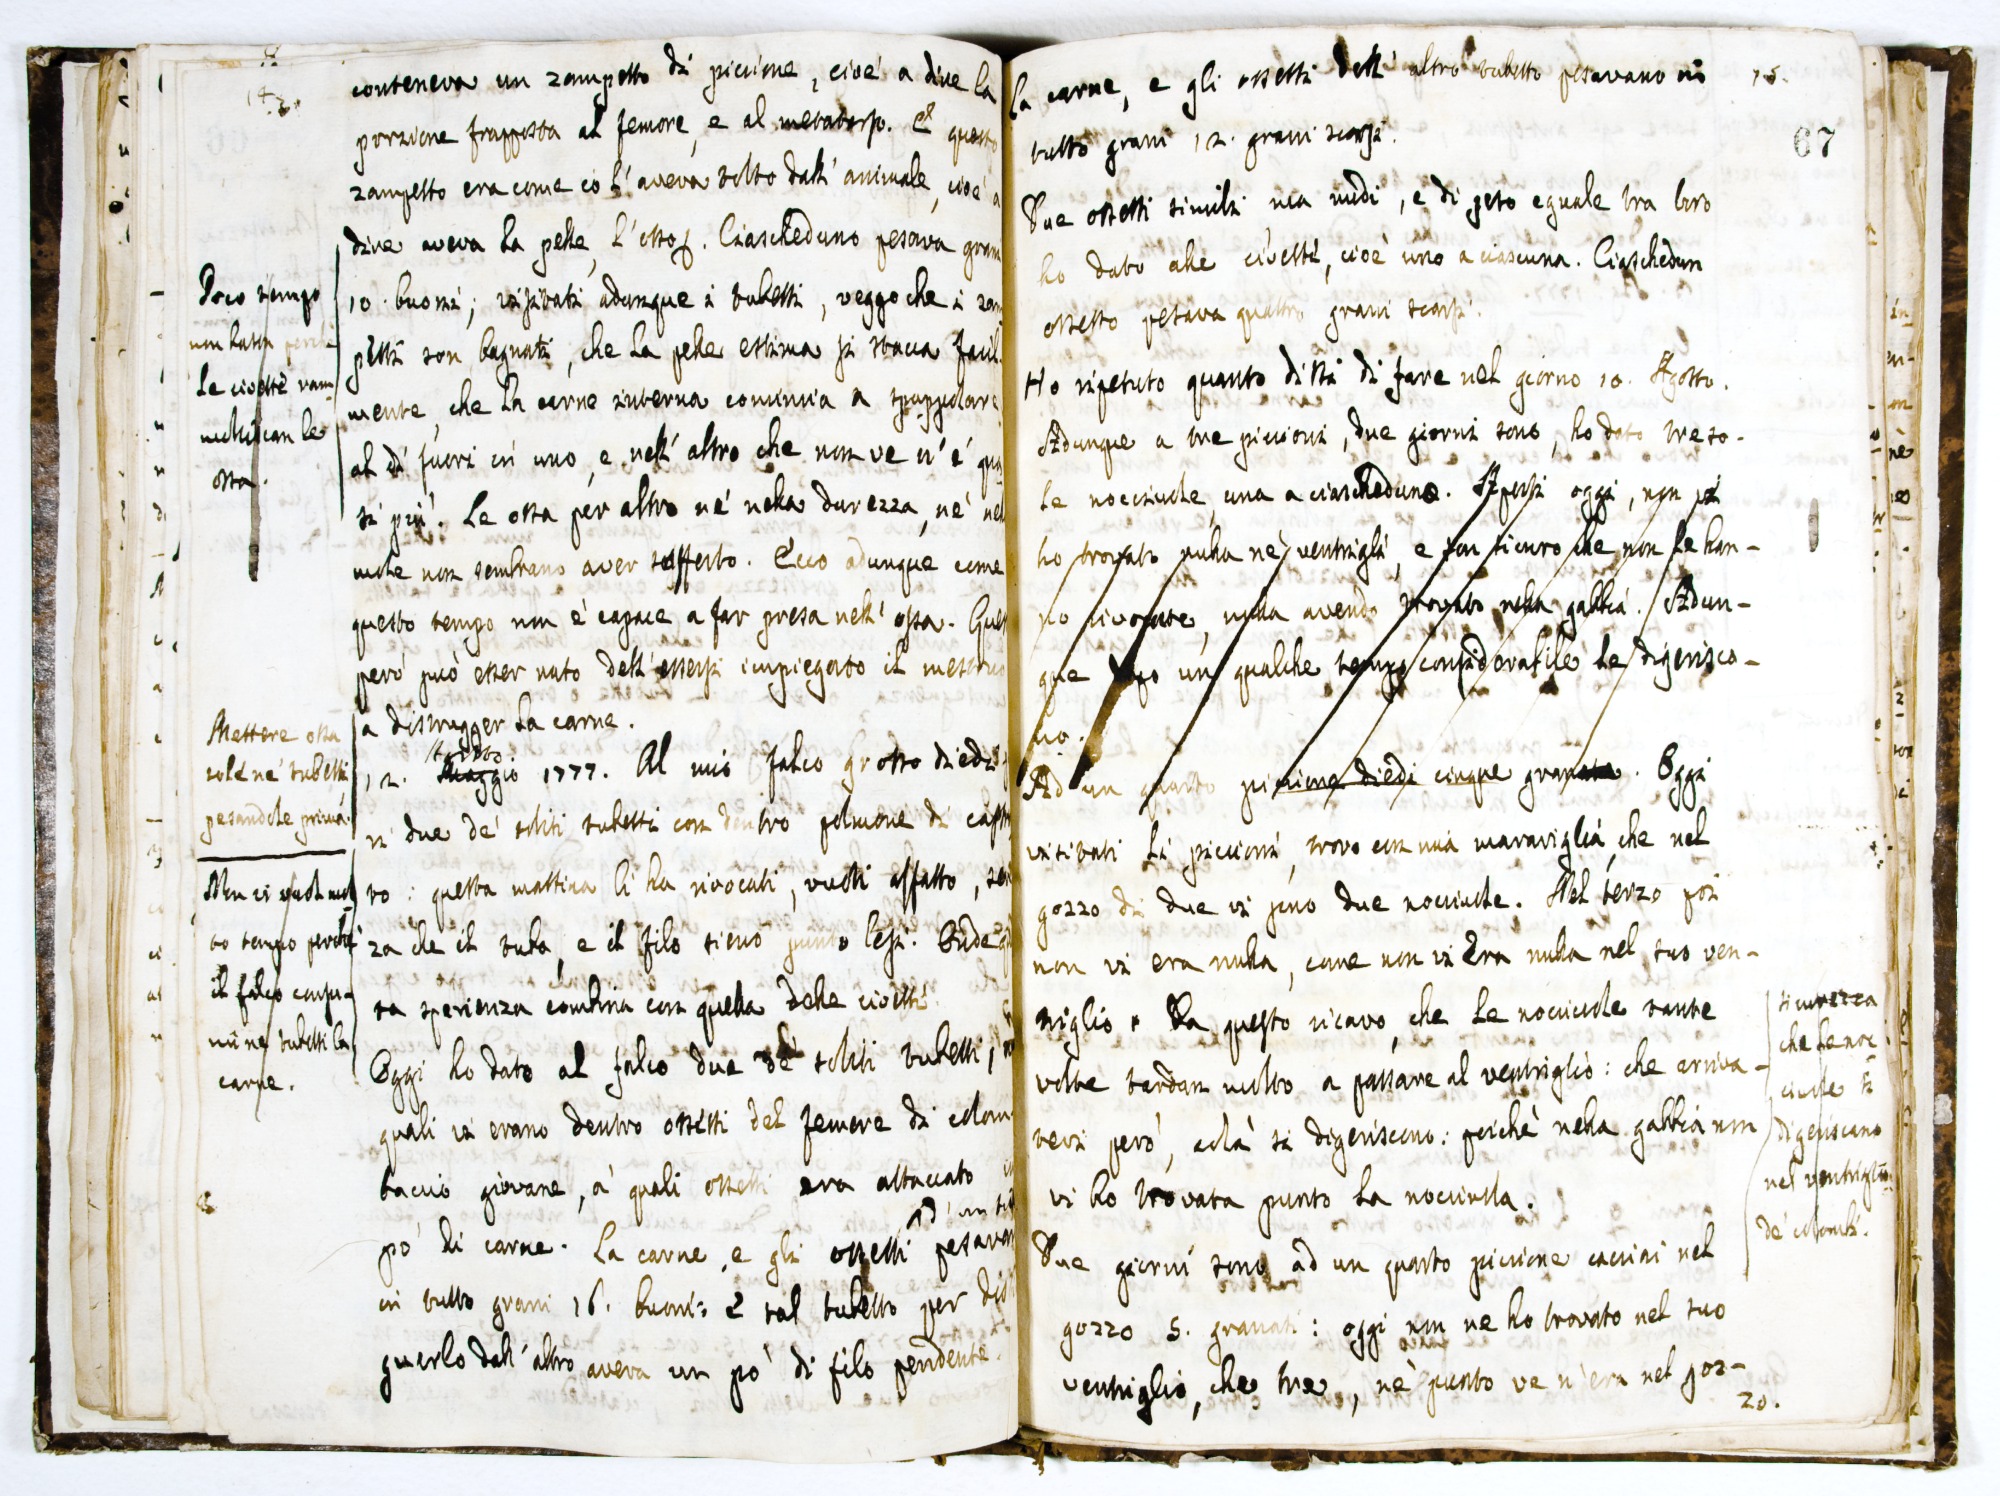 148.
conteneva un zampetto di piccione, cioè a dire la
porzione frapposta al femore, e al metatarso. E questo
zampetto era come io l'aveva tolto dall' animale, cioè a
dire aveva la pelle, l'osso. Ciascheduno pesava grani
10. buoni; visitati adunque i tubetti, veggo che i zam
petti son bagnati, che la pelle esterna si stacca facil
mente, che la carne interna comincia a spappolarsi
al di fuori in uno, e nell' altro che non ve n' è qua
si più. Le ossa per altro nè nella durezza, nè nel
mole non sembrano aver sofferto. Ecco adunque come
questo tempo non è capace a far presa nell' ossa. Quest
però può esser nato dell' essersi impiegato il mestruo
a distrugger la carne.
Poco tempo
non basta perchè
le civette ram
molliscan le
ossa.
12. Maggio 1777. Al mio falco grosso diedi
ri due de' soliti tubetti con dentro polmone di cast
ro: questa mattina li ha rivocati, vuoti affatto, sen
za che il tubo, e il filo sieno punto lesi. Onde
ta sperienza combina con quella delle civette.
Mettere ossa
sole ne' tubetti
pesandole prima.
Non ci vuol mol
to tempo perchè
il falco consu-
mi ne' tubetti la
carne.
Oggi ho dato al falco due de' soliti tubetti, ne
quali vi erano dentro ossetti del femore di colom
baccio giovane, a' quali ossetti era attaccato un
po' di carne. La carne, e gli ossetti pesavan
in tutto grani 16. buoni: e tal tubetto per dist
guerlo dall' altro aveva un po' di filo pendente.
15.
67
la carne, e gli ossetti dell' altro tubetto pesavano in
tutto grani 12. grani scarsi.
Due ossetti simili ma nudi, e di peso eguale tra loro
ho dato alle civette, cioè uno a ciascuna. Ciaschedun
ossetto pesava quattro grani scarsi.
Ho ripetuto quanto dissi di fare nel giorno 10. Agosto.
Adunque a tre piccioni, due giorni sono, ho dato tre so-
le nocciuole, una a ciascheduno. Apersi oggi, non vi
ho trovato nulla ne' ventrigli, e son sicuro che non le han-
no rivocate, nulla avendo trovato nella gabbia. Adun-
que dopo un qualche tempo considerabile le digerisco-
no.
Ad un quarto piccione diedi cinque granate. Oggi
visitati li piccioni, trovo con mia maraviglia, che nel
gozzo di due vi sono due nocciuole. Nel terzo poi
non vi era nulla, come non vi era nulla nel suo ven-
triglio. Da questo ricavo, che le nocciuole tante
volte tardan molto a passare al ventriglio: che arriva-
tevi però, colà si digeriscono: poichè nella gabbia non
vi ho trovata punto la nocciuola.
sicurezza
che le noc
ciuole si
digeriscano
nel ventriglio
de' colombi.
Due giorni sono ad un quarto piccione cacciai nel
gozzo 5. granati: oggi non ne ho trovato nel suo
ventriglio, che tre, nè punto ve n' era nel goz-
20.